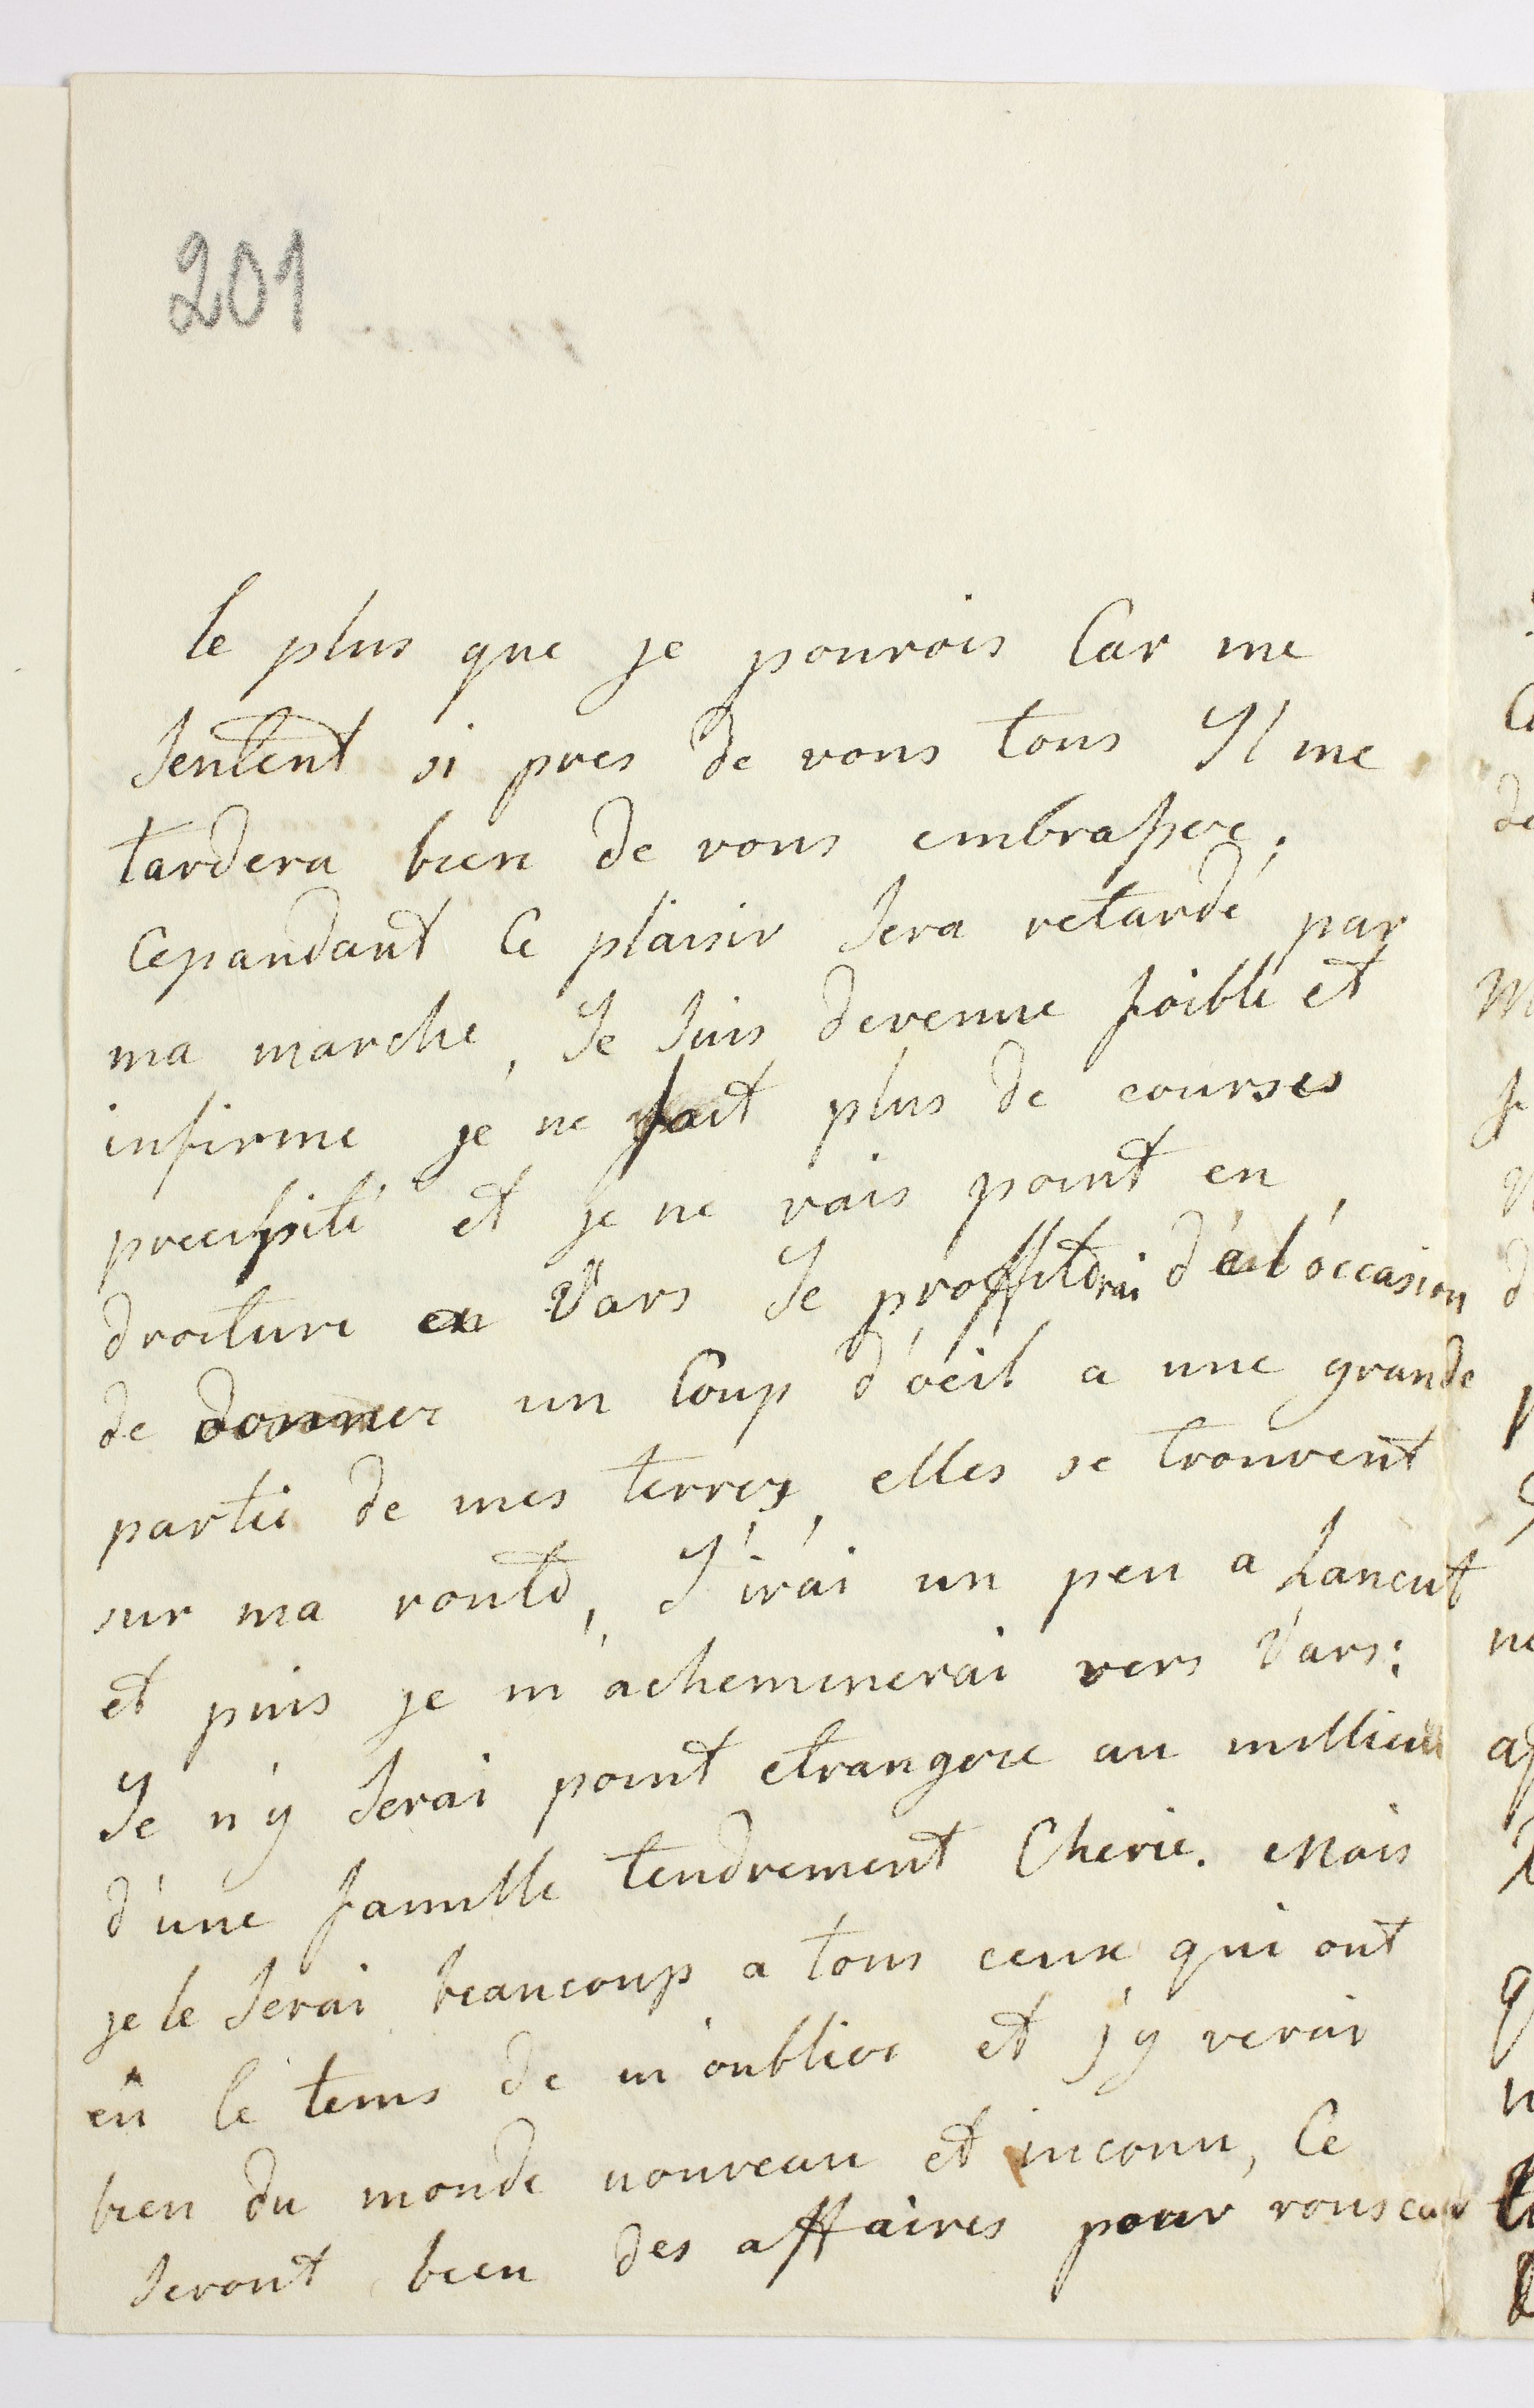 201
le plus que je pourois Car me
Sentent si pres de vous tous Il me
tardera bien de vous embrasser.
Cepandant Ce plaisir Sera retardé par
ma marche, Je Suis devenue foible et
infirme je ne fait plus de courses
precipité et je ne vais point en
droiture en Vars Je proffiterai d'éid'óccasion
de donner un Coup d'oeil a une grande
partie de mes terres, elles se trouvent
sur ma route, J'irai un peu a Lancut
et puis je m'acheminerai vers Vars:
Je n'y Serai point etrangere au millieu
d'une famille tendrement Cherie. Mais
je le Serai beaucoup a tous ceux qui ont
eû le tems de m'oublier et j'y verai
bien du monde nouveau et inconu, Ce
Seront bien des affaires pour vous car